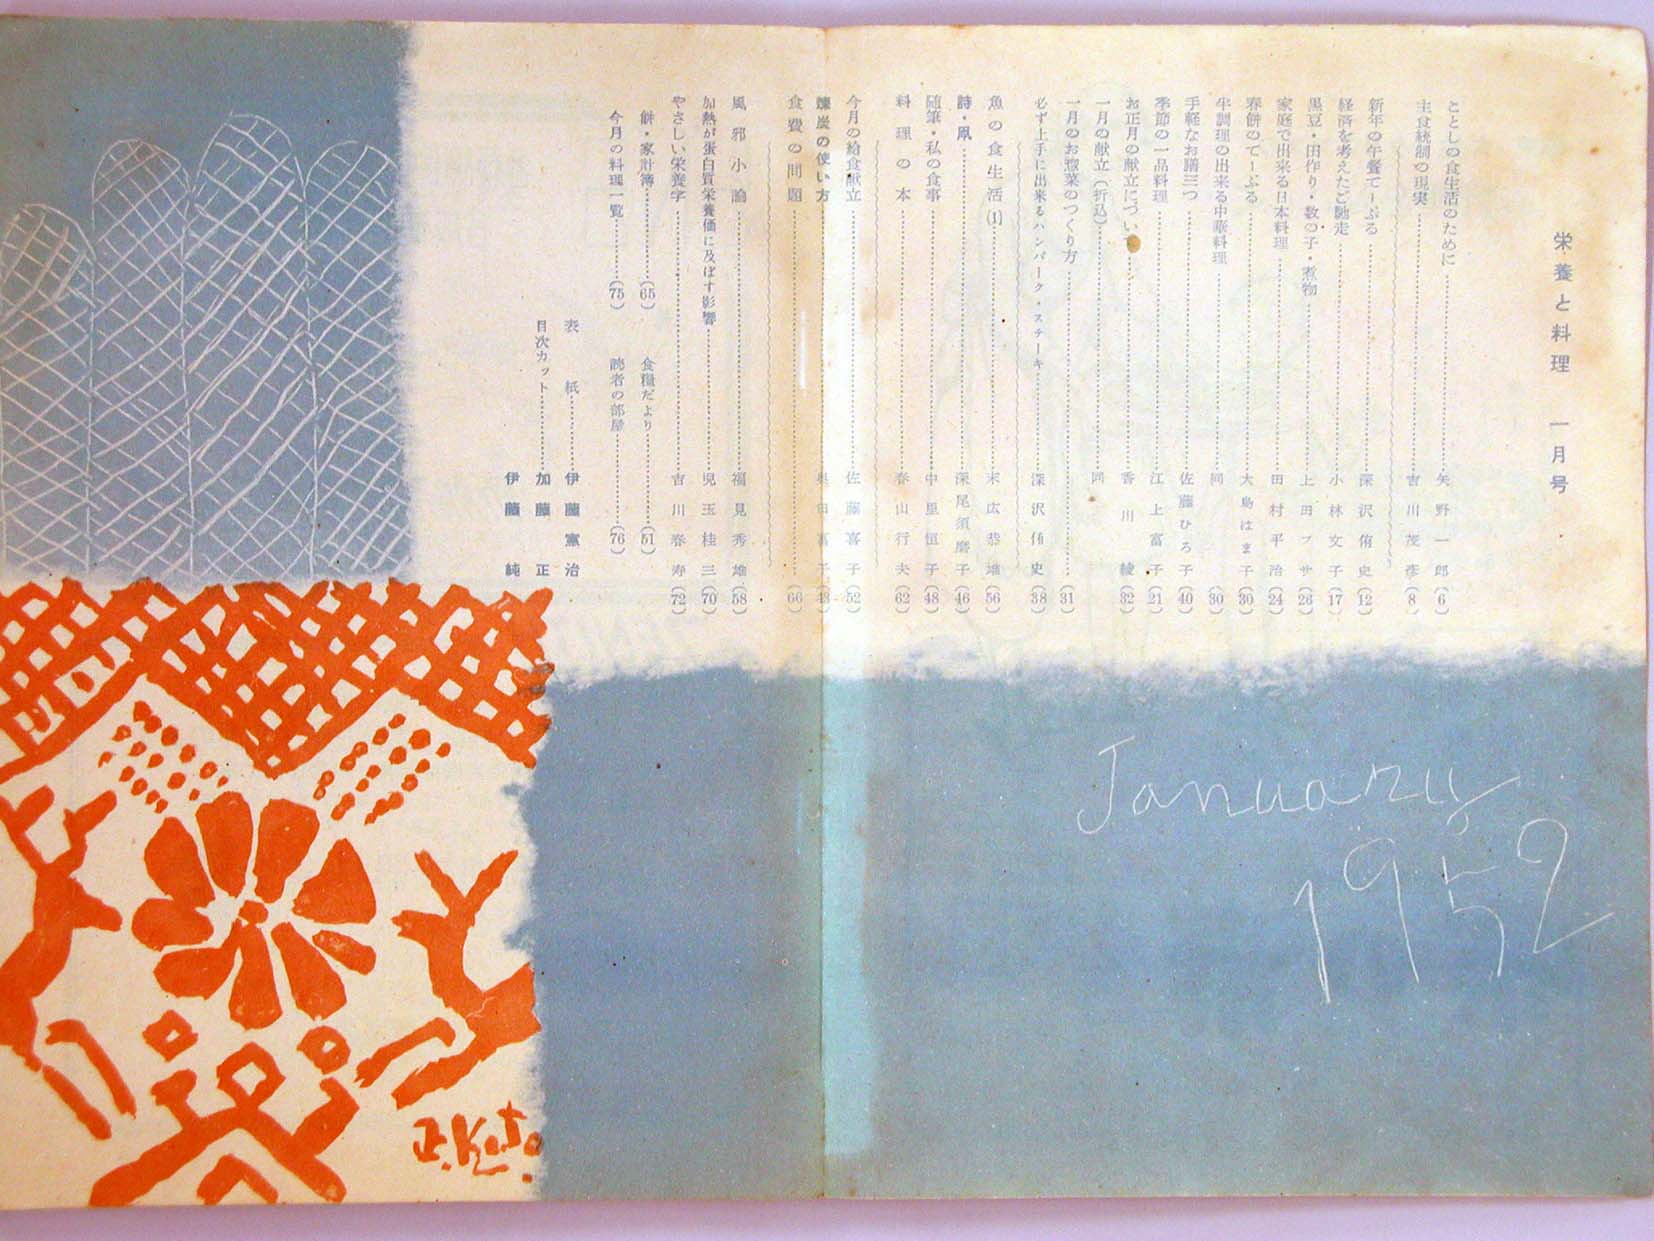 栄養と料理 一月号
ことしの食生活のために……矢野一郎(6)
主食統制の現実……吉川茂彦(8)
新年の午餐てーぶる……深沢侑史(12)
経済を考えたご馳走……小林文子(17)
黒豆・田作り・数の子・煮物……上田フサ(26)
家庭で出来る日本料理……田村平治(24)
春餅のてーぶる……大島はま子(30)
半調理の出来る中華料理……同(30)
手軽なお膳三つ……佐藤ひろ子(40)
季節の一品料理……江上富子(21)
お正月の献立について……香川綾(32)
一月の献立(折込)……同
一月のお惣菜のつくり方……(31)
必ず上手に出来るハンバーク・ステーキ……深沢侑史(38)
魚の食生活(1)……末広恭雄(56)
詩・凧……深尾須磨子(46)
随筆・私の食事……中里恒子(48)
料理の本……春山行夫(62)
今月の給食献立……佐藤喜子(52)
煉炭の使い方
食費の問題……(66)
風邪小論……福見秀雄(58)
加熱が蛋白質栄養価に及ぼす影響……児玉桂三(70)
やさしい栄養学……吉川春寿(72)
餅・家計簿……(65) 食糧だより……(51)
今月の料理一覧……(75) 読者の部屋……(76)
表紙……伊藤憲治
目次カット……加藤正
伊藤純
January
1952